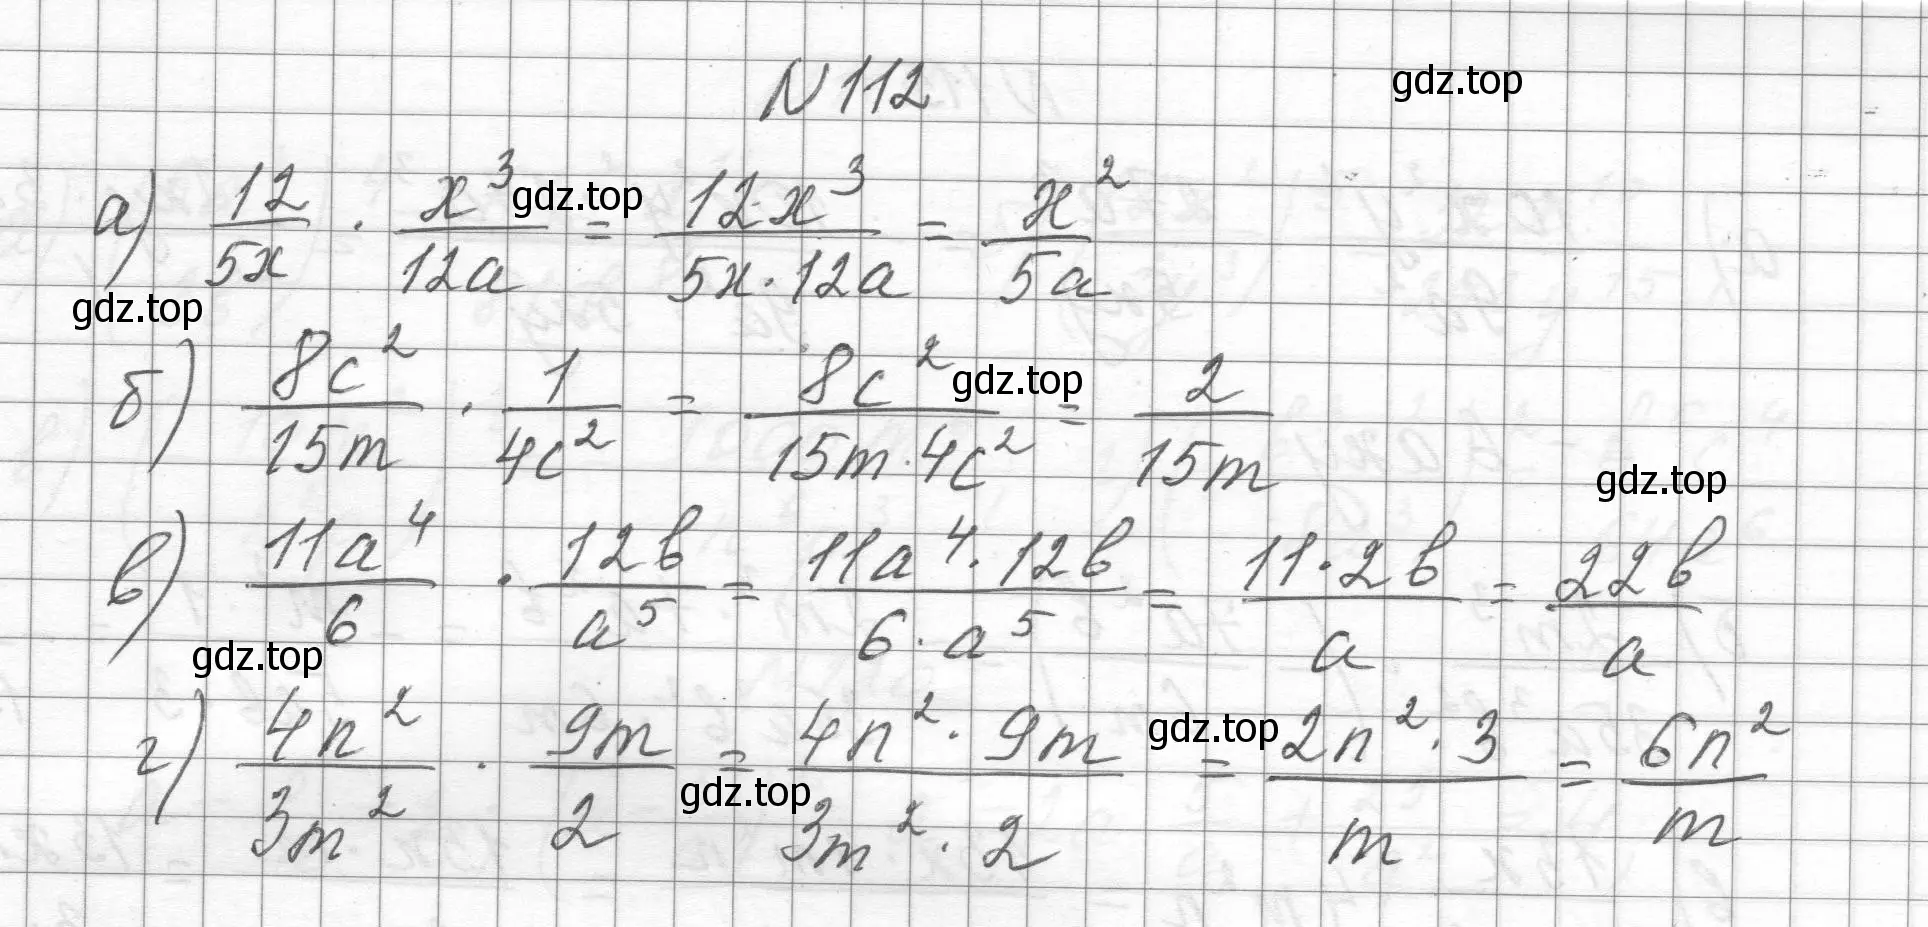 N 112
gdz.top
а) 12/5x · x³/12a = 12·x³/5x·12a = x²/5a
gdz.top
gdz.top
б) 8c²/15m · 1/4c² = 8c²/15m·4c² = 2/15m
gdz.top
gdz.top
в) 11a⁴/6 · 12b/a⁵ = 11a⁴·12b/6·a⁵ = 11·2b/a = 22b/a
gdz.top
г) 4n²/3m² · 9m/2 = 4n²·9m/3m²·2 = 2n²·3/m = 6n²/m
gdz.top
gdz.top